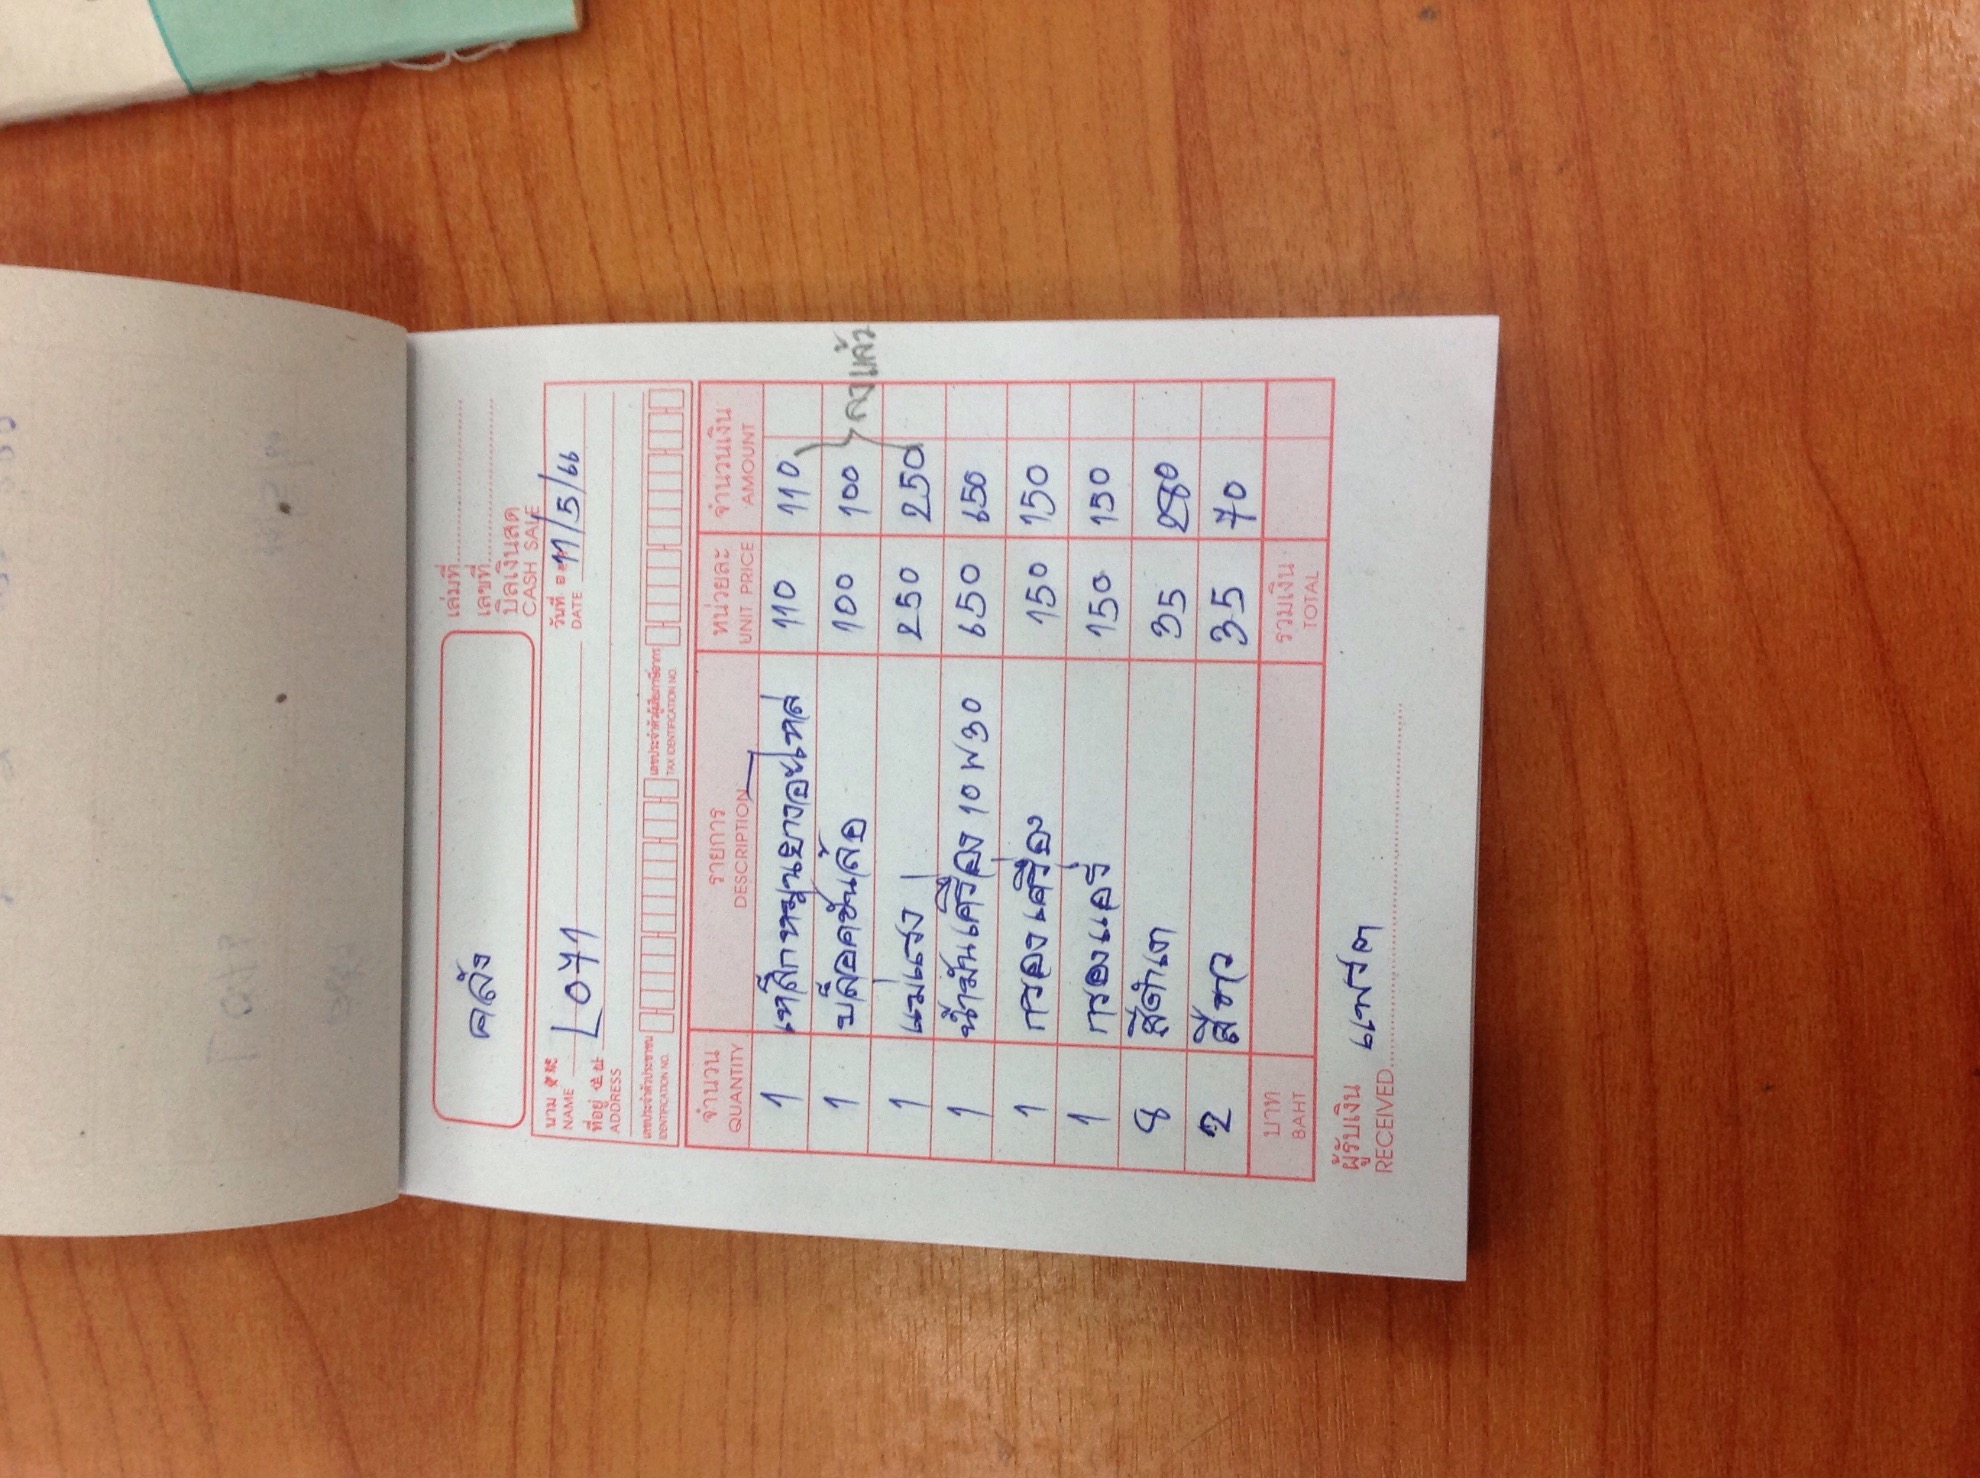 คลัง
เล่มที่
เลขที่
บิลเงินสด
CASH SALE
นาม L 071 วันที่ 11/5/66
NAME DATE
ที่อยู่
ADDRESS
เลขประจำตัวประชาชน เลขประจำตัวผู้เสียภาษีอากร
IDENTIFICATION NO. TAX IDENTIFICATION NO.
จำนวน รายการ หน่วยละ จำนวนเงิน
QUANTITY DESCRIPTION UNIT PRICE AMOUNT
1 110 110
1 บล็อคขันล้อ 100 100 ลงแล้ว
1 แม่แรง 250 250
1 น้ำมันเครื่อง 10W30 650 650
1 กรองเครื่อง 150 150
1 กรองแอร์ 150 150
8 สีดำเงา 35 280
2 สีขาว 35 70
บาท รวมเงิน
BAHT TOTAL
ผู้รับเงิน
RECEIVED